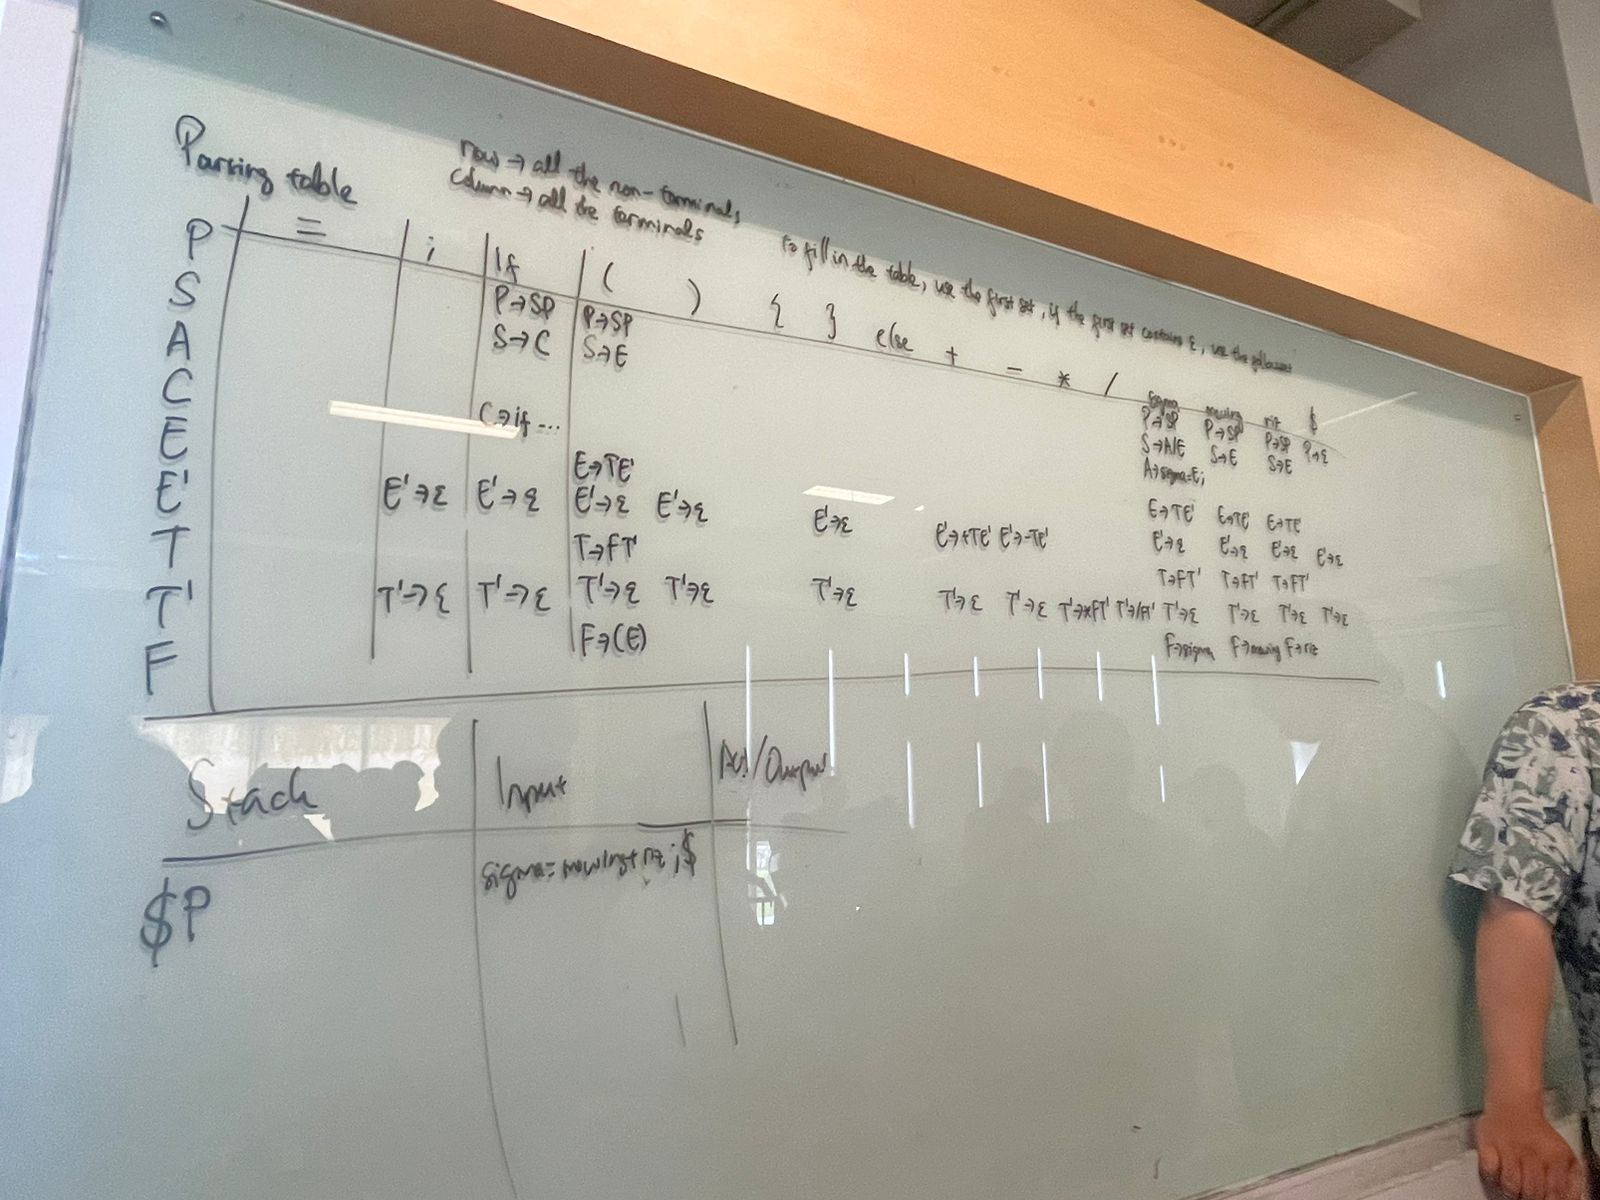 Parsing table
row → all the non-terminals,
column → all the terminals
to fill in the table, use the first set, if the first set contains ε, use the follow set
= ; If ( ) { } else + - * / sigma mewing riz $
P P→SP P→SP P→SP P→SP P→SP P→ε
S S→C S→E S→A/E S→E S→E
A A→sigma=E;
C C→if ...
E E→TE' E→TE' E→TE' E→TE'
E' E'→ε E'→ε E'→ε E'→ε E'→ε E'→+TE' E'→-TE' E'→ε E'→ε E'→ε E'→ε
T T→FT' T→FT' T→FT' T→FT'
T' T'→ε T'→ε T'→ε T'→ε T'→ε T'→ε T'→ε T'→*FT' T'→/FT' T'→ε T'→ε T'→ε T'→ε
F F→(E) F→sigma F→mewing F→riz
Stack Input Act/Output
$P sigma=mewing+riz;$